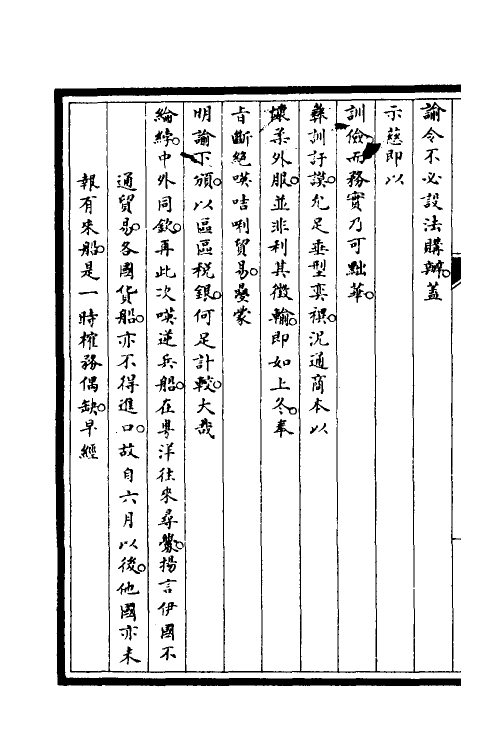 諭令不必設法購辦。蓋
示慈即以
訓儉而務實乃可黜華。
彝訓訏謨。允足垂型奕禩。況通商本以
懷柔外服。並非利其徵輸。即如上冬。奉
旨斷絕嘆咭唎貿易。疊蒙
明諭下頒。以區區稅銀。何足計較。大哉
綸綍。中外同欽。再此次嘆逆兵船。在粵洋往來尋釁。揚言伊國不
通貿易。各國貨船。亦不得進口。故自六月以後。他國亦未
報有來船。是一時榷務偶缺。早經